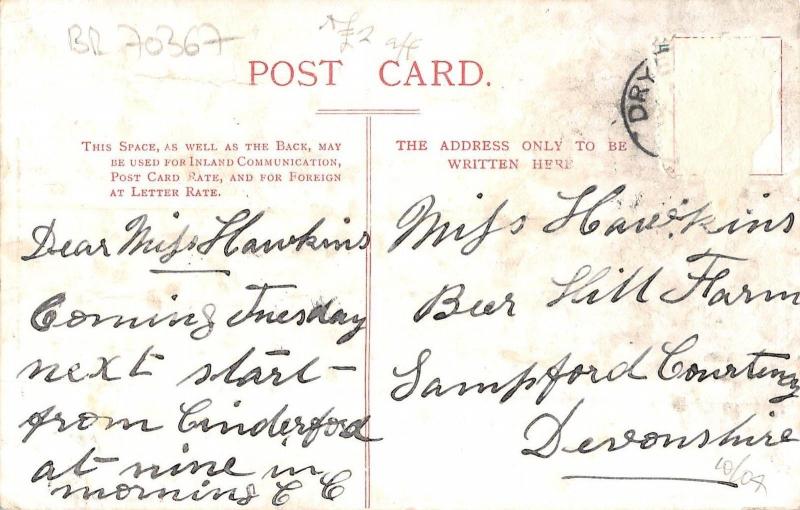 BR 70367
£2
POST CARD.
DRY
THIS SPACE, AS WELL AS THE BACK, MAY
BE USED FOR INLAND COMMUNICATION,
POST CARD RATE, AND FOR FOREIGN
AT LETTER RATE.
THE ADDRESS ONLY TO BE
WRITTEN HERE
Dear Miss Hawkins
Coming Tuesday
next start-
from Cinderford
at nine in
morning C C
Miss Hawkins
Beer Hill Farm
Sampford Courteny
Devonshire
10/04